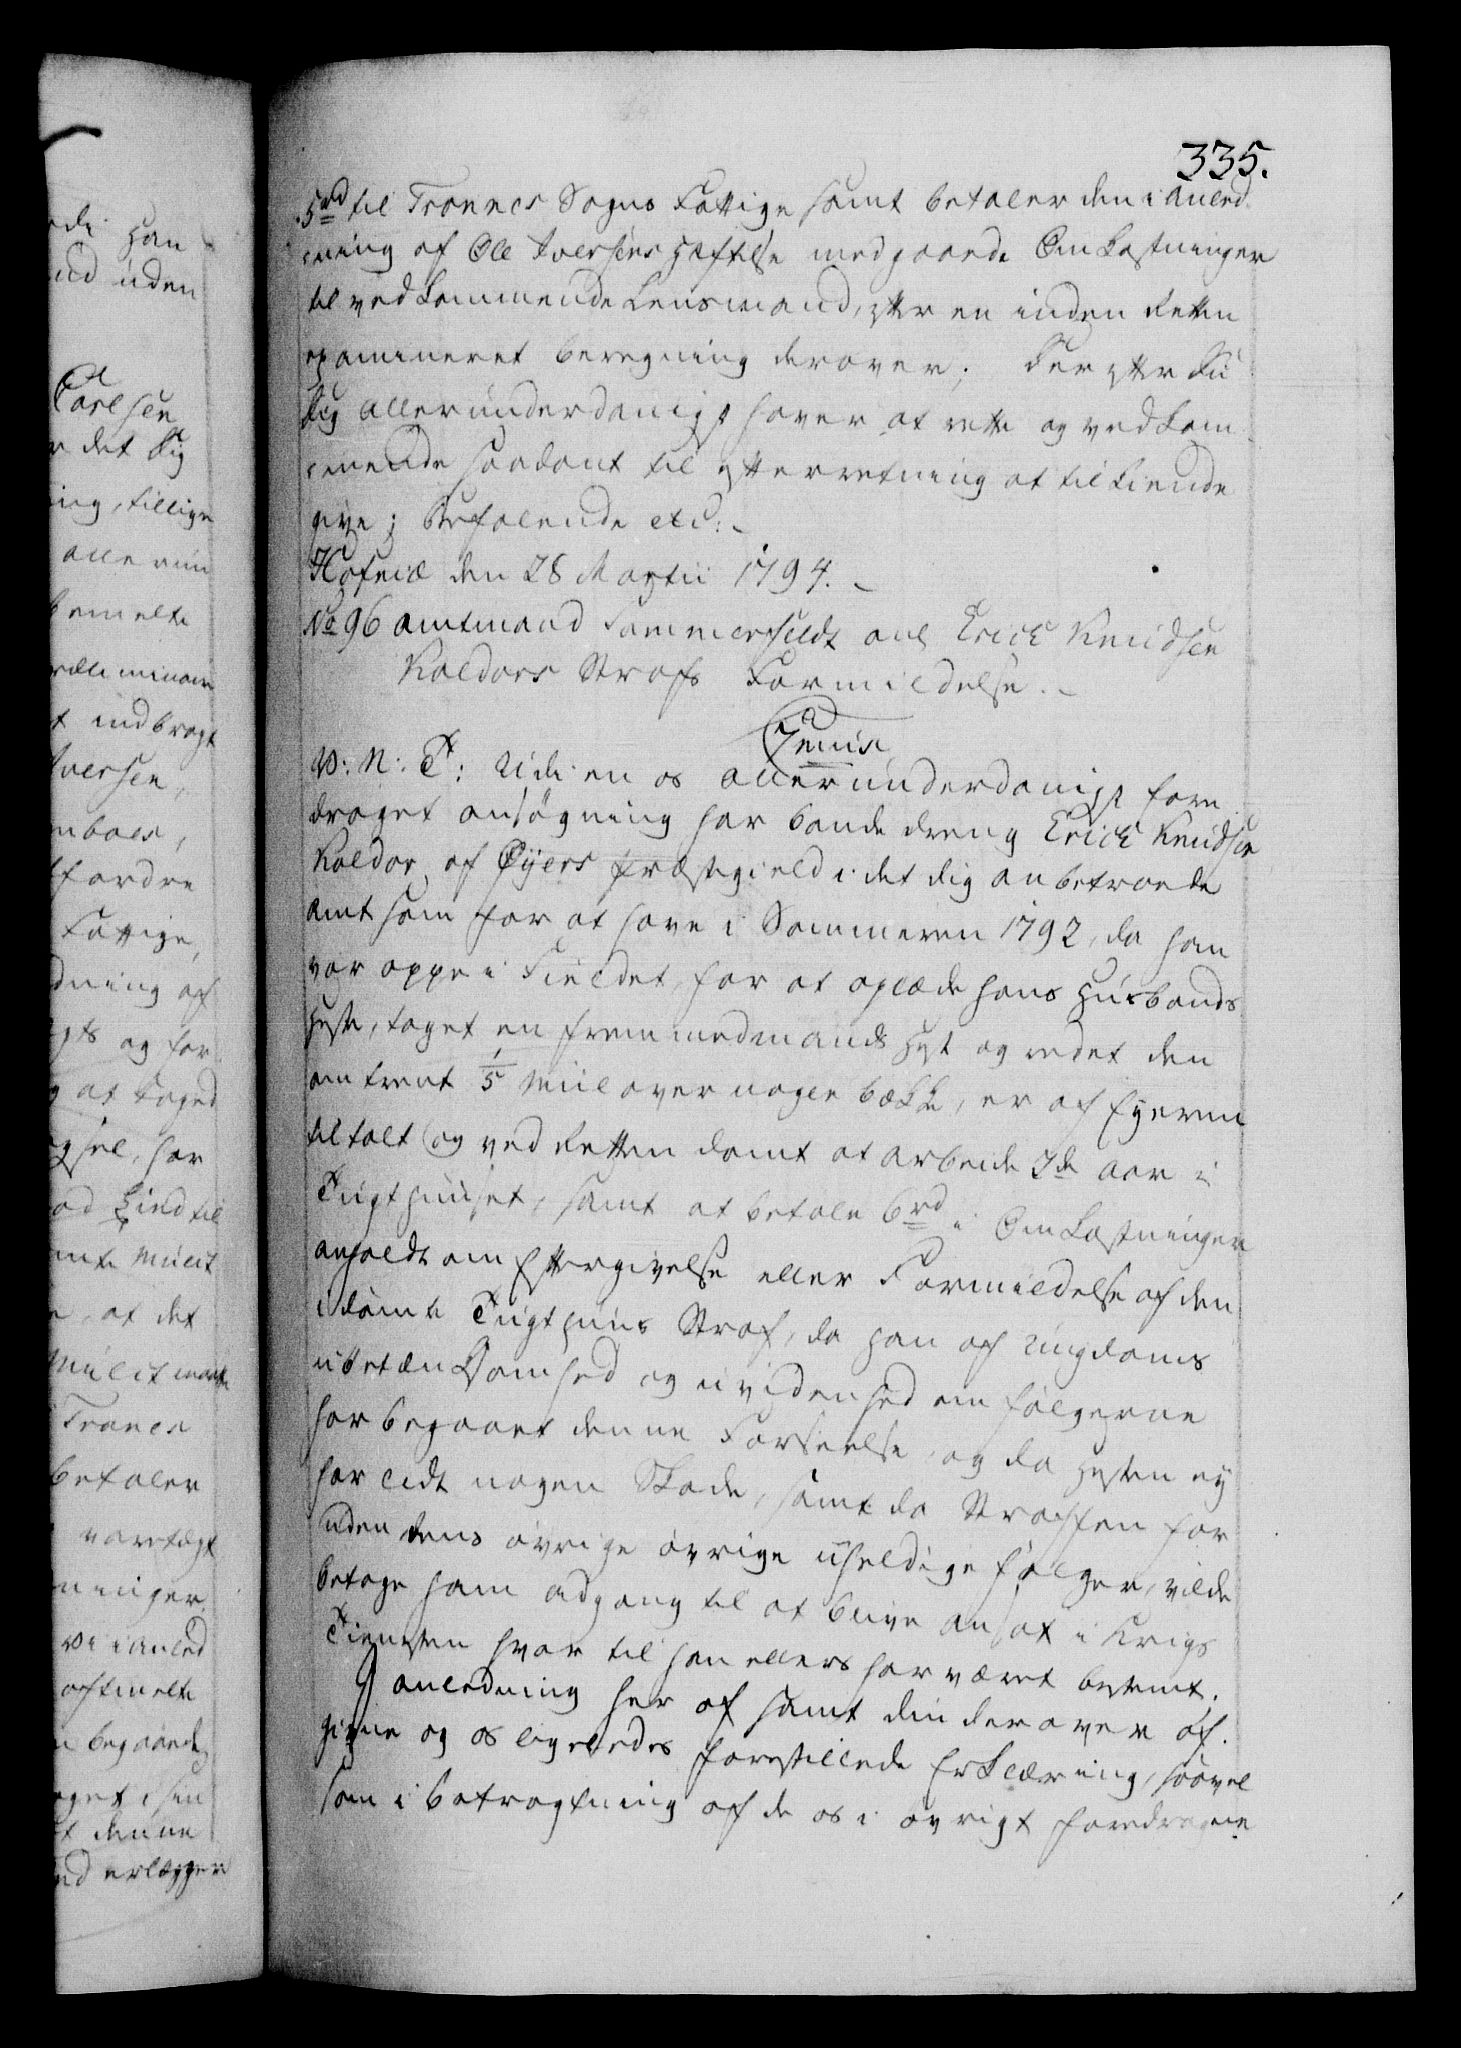 335.
5rd til Tronnes Sogns Fattige samt betaler den i Anled
ning af Ole Iversens Hæftelse medgaaede Omkostninger
til vedkommende Lensmand, efter en inden Retten
examineret beregning derover; Der efter Du
Dig allerunderdanigst haver at rette og vedkom
mende saadant til Efterretning at tilkiende
give; Befalende etc:
Hafniæ den 28 Martii 1794.
No 96 Amtmand Sommerfeldt anl Erich Knudsen
Kaldors Strafs Formildelse.
Genis
V: N: T: Udi en os allerunderdanigst fore
draget ansøgning har bonde dreng Erich Knudsen
Kaldor af Øyers Præstegield i det dig anbetroede
Amt som for at have i Sommeren 1792, da han
var oppe i Fieldet, for at oplede hans Huusbonds
Heste, taget en fremmedmands Hest og redet den
omtrent 1/5 Miil over nogle bække, er af Eyeren
tiltalt og ved Retten dømt at arbeide 2de Aar i
Tugthuuset, samt at betale 6rd i Omkostninger
anholdt om Eftergivelse eller Formildelse af den
idømte Tugthuus Straf, da han af Ungdoms
ubetænksomhed og uvidenhed om følgerne
har begaaet denne Forseelse og da Hesten ey
har lidt nogen Skade, samt da Straffen for
uden dens øvrige øvrige uheldige følger, vilde
betage ham adgang til at blive ansat i Krigs
Tienesten hvor til han ellers har været bestemt.
I anledning her af samt din derover af
givne og os ligeledes forestillede Erklæring, saavel
som i betragtning af de os i øvrigt foredragne